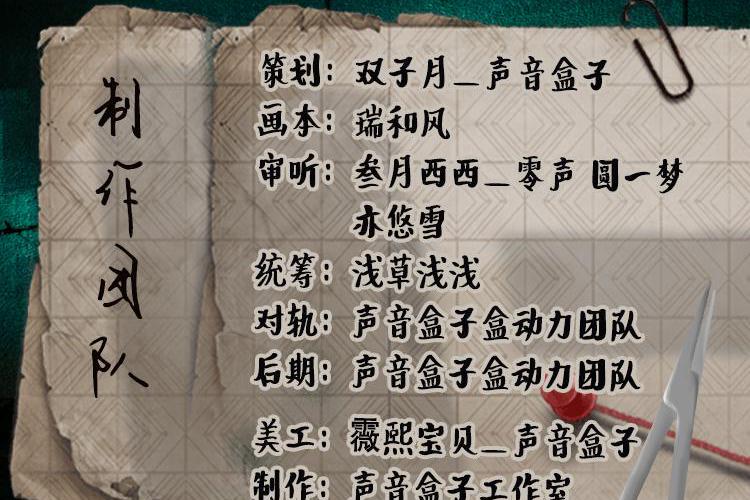 制作团队
策划：双子月_声音盒子
画本：瑞和风
审听：叁月西西_零声 圆一梦
亦悠雪
统筹：浅草浅浅
对轨：声音盒子盒动力团队
后期：声音盒子盒动力团队
美工：霺熙宝贝_声音盒子
制作：声音盒子工作室